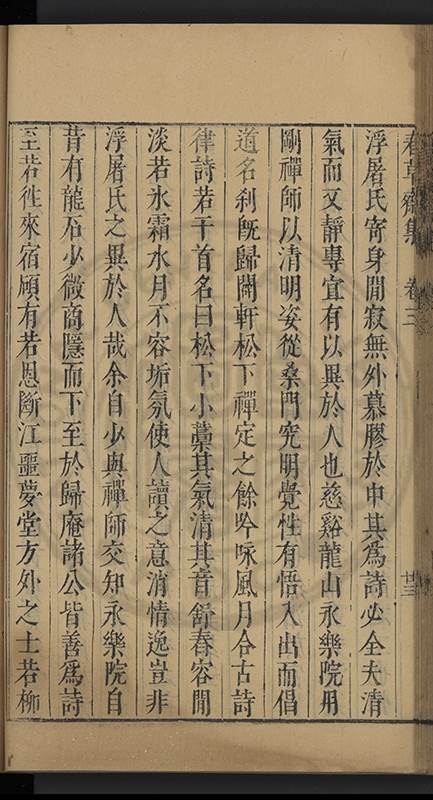 春草齋集 卷三 廿三
浮屠氏寄身閒寂無外慕膠於中其爲詩必全夫清
氣而又靜專宜有以異於人也慈谿龍山永樂院用
剛禪師以清明姿從桑門究明覺性有悟入出而倡
道名刹旣歸閒軒松下禪定之餘吟咏風月合古詩
律詩若干首名曰松下小藁其氣清其音舒春容閒
淡若氷霜水月不容垢氛使人讀之意消情逸豈非
浮屠氏之異於人哉余自少與禪師交知永樂院自
昔有龍石少微商隱而下至於歸庵諸公皆善爲詩
至若徃來宿顧有若恩斷江噩夢堂方外之士若柳